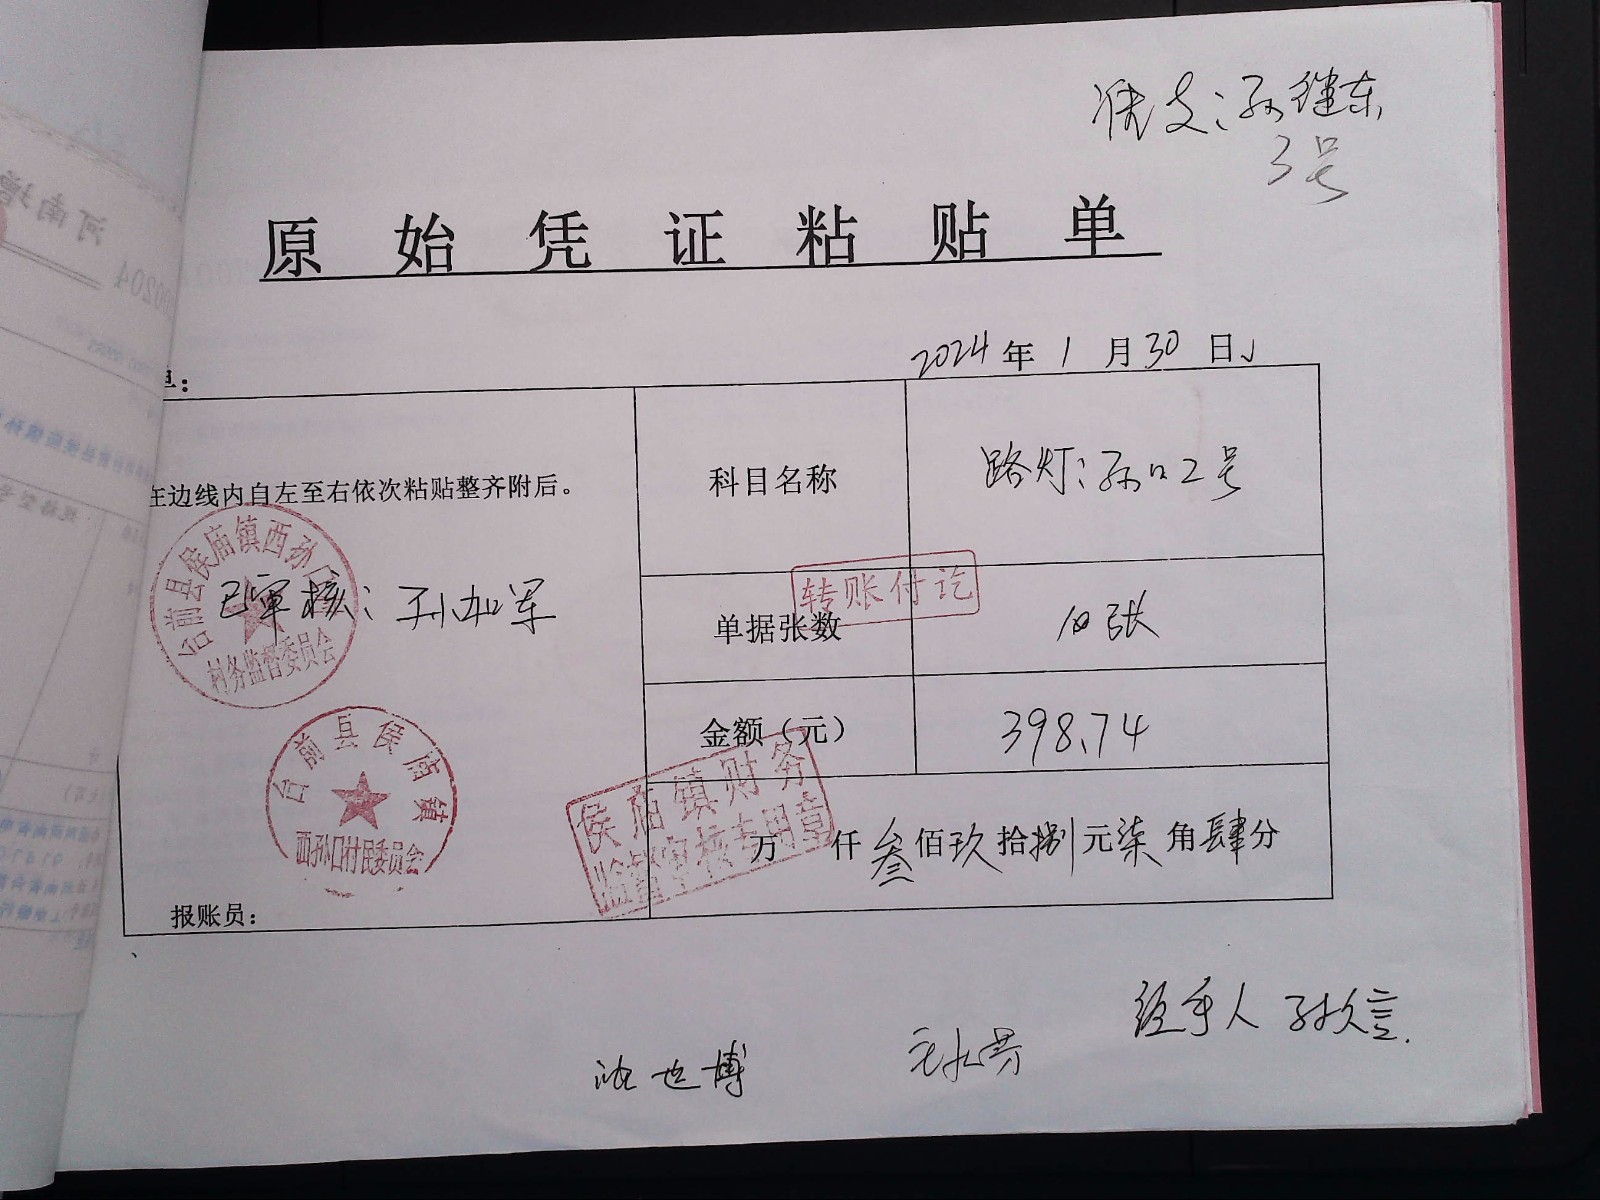 准支:孙继东
3号
原始凭证粘贴单
2024年1月30日
在边线内自左至右依次粘贴整齐附后。
科目名称
路灯:孙口2号
台前县侯庙镇西孙口
已审核:孙加军
村务监督委员会
转账付讫
单据张数
10张
金额(元)
398.74
台前县侯庙镇
西孙口村民委员会
侯庙镇财务
监督审核专用章
万 仟叁佰玖拾捌元柒角肆分
报账员:
经手人
沈世博
河南增
00204